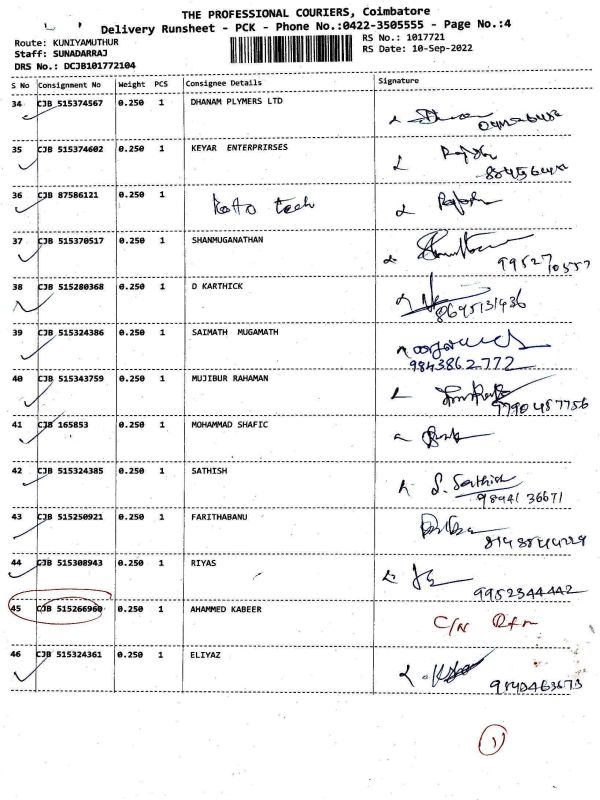 THE PROFESSIONAL COURIERS, Coimbatore
Delivery Runsheet - PCK - Phone No.:0422-3505555 - Page No.:4
Route: KUNIYAMUTHUR
RS No.: 1017721
Staff: SUNADARRAJ
RS Date: 10-Sep-2022
DRS No.: DCJB101772104
S No Consignment No Weight PCS Consignee Details Signature
34 CJB 515374567 0.250 1 DHANAM PLYMERS LTD
35 CJB 515374602 0.250 1 KEYAR ENTERPRIRSES
36 CJB 87586121 0.250 1
37 CJB 515370517 0.250 1 SHANMUGANATHAN
99527
10557
38 CJB 515280368 0.250 1 D KARTHICK
8695131436
39 CJB 515324386 0.250 1 SAIMATH MUGAMATH
9843862772
40 CJB 515343759 0.250 1 MUJIBUR RAHAMAN
9790487756
41 CJB 165853 0.250 1 MOHAMMAD SHAFIC
42 CJB 515324385 0.250 1 SATHISH S. Sathish
98941 36671
43 CJB 515250921 0.250 1 FARITHABANU
44 CJB 515308943 0.250 1 RIYAS
9952344442
45 CJB 515266960 0.250 1 AHAMMED KABEER C/N
46 CJB 515324361 0.250 1 ELIYAZ
1